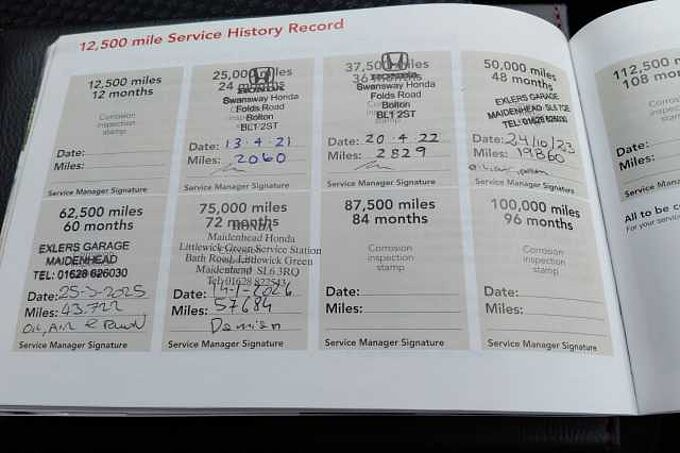 12,500 mile Service History Record
12,500 miles
12 months
Corrosion
inspection
stamp
Date:
Miles:
Service Manager Signature
25,000 miles
24 months
HONDA
Swansway Honda
Folds Road
Bolton
BL1 2ST
Date: 13.4.21
Miles: 2060
Service Manager Signature
37,500 miles
36 months
HONDA
Swansway Honda
Folds Road
Bolton
BL1 2ST
Date: 20.4.22
Miles: 2829
Service Manager Signature
50,000 miles
48 months
EXLERS GARAGE
MAIDENHEAD SL6 7QE
TEL: 01628 626030
Date: 24/10/23
Miles: 19860
Service Manager Signature
62,500 miles
60 months
EXLERS GARAGE
MAIDENHEAD
TEL: 01628 626030
Date: 25-3-2025
Miles: 43,722
OIL, AIR &
Service Manager Signature
75,000 miles
72 months
HONDA
Maidenhead Honda
Littlewick Green Service Station
Bath Road, Littlewick Green
Maidenhead SL6 3RQ
Tel: 01628 822543
Date: 14-1-2026
Miles: 57684
Damian
Service Manager Signature
87,500 miles
84 months
Corrosion
inspection
stamp
Date:
Miles:
Service Manager Signature
100,000 miles
96 months
Corrosion
inspection
stamp
Date:
Miles:
Service Manager Signature
112,500 m
108 mon
Corrosi
inspec
stam
Date:
Miles:
Service Manag
All to be c
For your servic